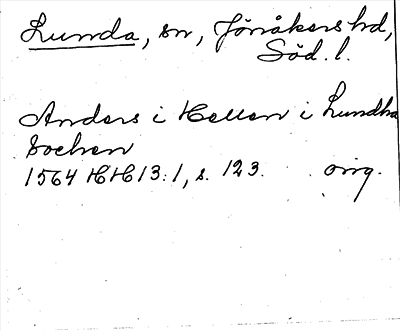 Lunda, sn, Jönåkers hd,
Söd. l.
Anders i Hallen i Lundha
Sochen
1564 HH 13:1, s. 123. orig.